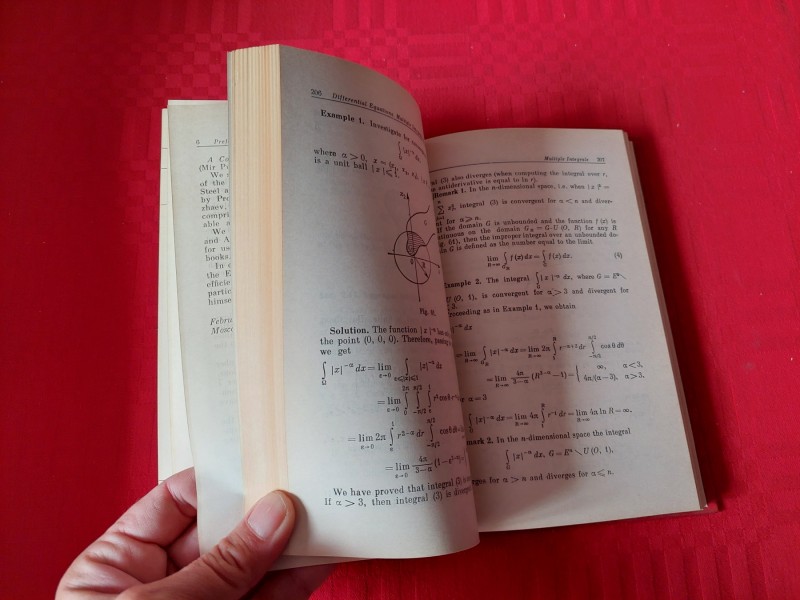 6 Pref
A Co
(Mir Pu
We
of the
Steel a
by Pro
zhaev,
compri
able a
We
and A
books.
In c
the E
efficie
partic
himse
Febru
Mosco
206 Differential Equations. Multiple
Example 1. Investigate for
∫ |x|⁻ᵅ dx,
where α > 0, x = (x₁, x₂,
is a unit ball |x| ≤ 1.
x₃
G
R
Fig. 61.
Solution. The function |x|⁻ᵅ has
the point (0, 0, 0). Therefore, passing
we get
∫ |x|⁻ᵅ dx = lim ∫ |x|⁻ᵅ dx
ε→0 ε≤|x|≤1
= lim ∫ ∫ ∫ r² cos θ r⁻ᵅ
= lim 2π ∫ r²⁻ᵅ dr ∫ cos θ dθ
= lim 4π/(3−α) (1 − ε³⁻ᵅ)
We have proved that integral (3)
If α > 3, then integral (3) is diverge
Multiple Integrals 207
(3) also diverges (when computing the integral over r,
antiderivative is equal to ln r).
Remark 1. In the n-dimensional space, i.e. when |x|² =
∑ xᵢ², integral (3) is convergent for α < n and diver-
ent for α ≥ n.
If the domain G is unbounded and the function f (x) is
continuous on the domain G_R = G·U (O, R) for any R
61), then the improper integral over an unbounded do-
G is defined as the number equal to the limit
lim ∫ f (x) dx = ∫ f (x) dx. (4)
R→∞ G_R G
Example 2. The integral ∫ |x|⁻ᵅ dx, where G = E³ \
U (O, 1), is convergent for α > 3 and divergent for
Proceeding as in Example 1, we obtain
⁻ᵅ dx
= lim ∫ |x|⁻ᵅ dx = lim 2π ∫ r⁻ᵅ⁺² dr ∫ cos θ dθ
= lim 4π/(3−α) (R³⁻ᵅ − 1) = { ∞, α < 3,
4π/(α−3), α > 3.
α = 3
∫ |x|⁻ᵅ dx = lim 4π ∫ r⁻¹ dr = lim 4π ln R = ∞.
Remark 2. In the n-dimensional space the integral
∫ |x|⁻ᵅ dx, G = Eⁿ \ U (O, 1),
rges for α > n and diverges for α ≤ n.